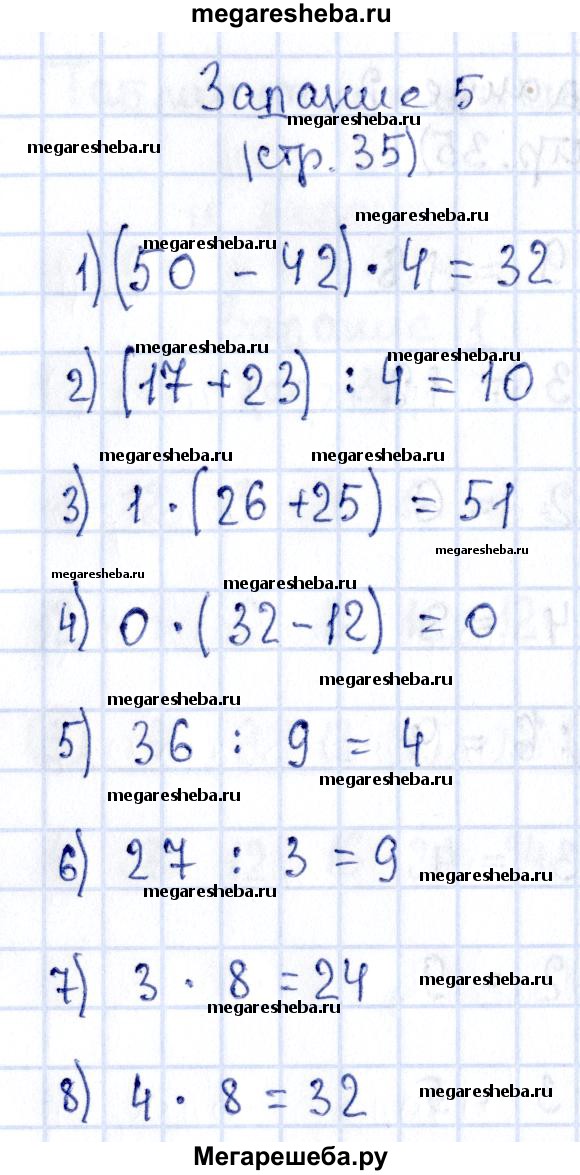 megaresheba.ru
Задание 5
megaresheba.ru
megaresheba.ru
(стр. 35)
megaresheba.ru
megaresheba.ru
1) (50 - 42) · 4 = 32
megaresheba.ru
megaresheba.ru
2) (17 + 23) : 4 = 10
megaresheba.ru megaresheba.ru
3) 1 · (26 + 25) = 51
megaresheba.ru
megaresheba.ru
megaresheba.ru
4) 0 · (32 - 12) = 0
megaresheba.ru
megaresheba.ru
5) 36 : 9 = 4
megaresheba.ru
megaresheba.ru
6) 27 : 3 = 9
megaresheba.ru
megaresheba.ru
7) 3 · 8 = 24
megaresheba.ru
megaresheba.ru
8) 4 · 8 = 32
megaresheba.ru
Мегарешеба.ру